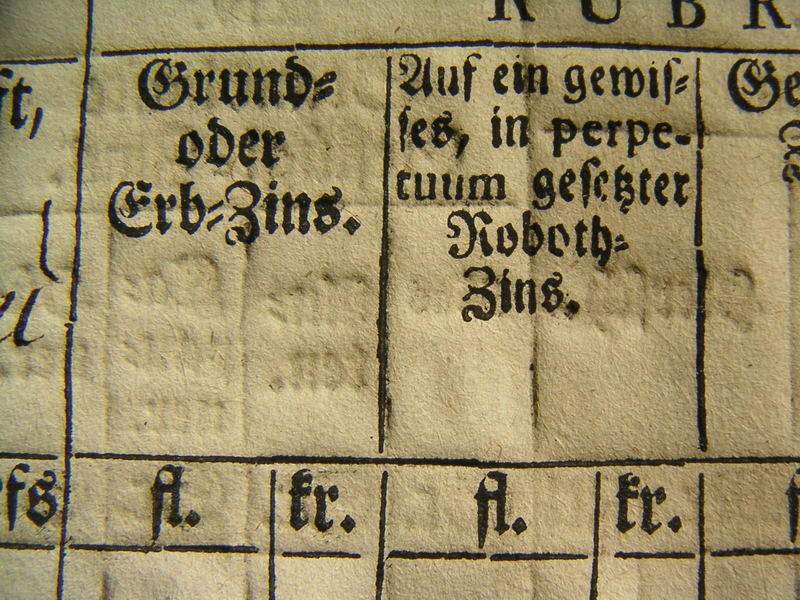 RUBR
ft,
Grund-
oder
Erb-Zins.
Auf ein gewis-
ses, in perpe-
tuum gesetzter
Roboth-
Zins.
Ge
fs
fl.
kr.
fl.
kr.